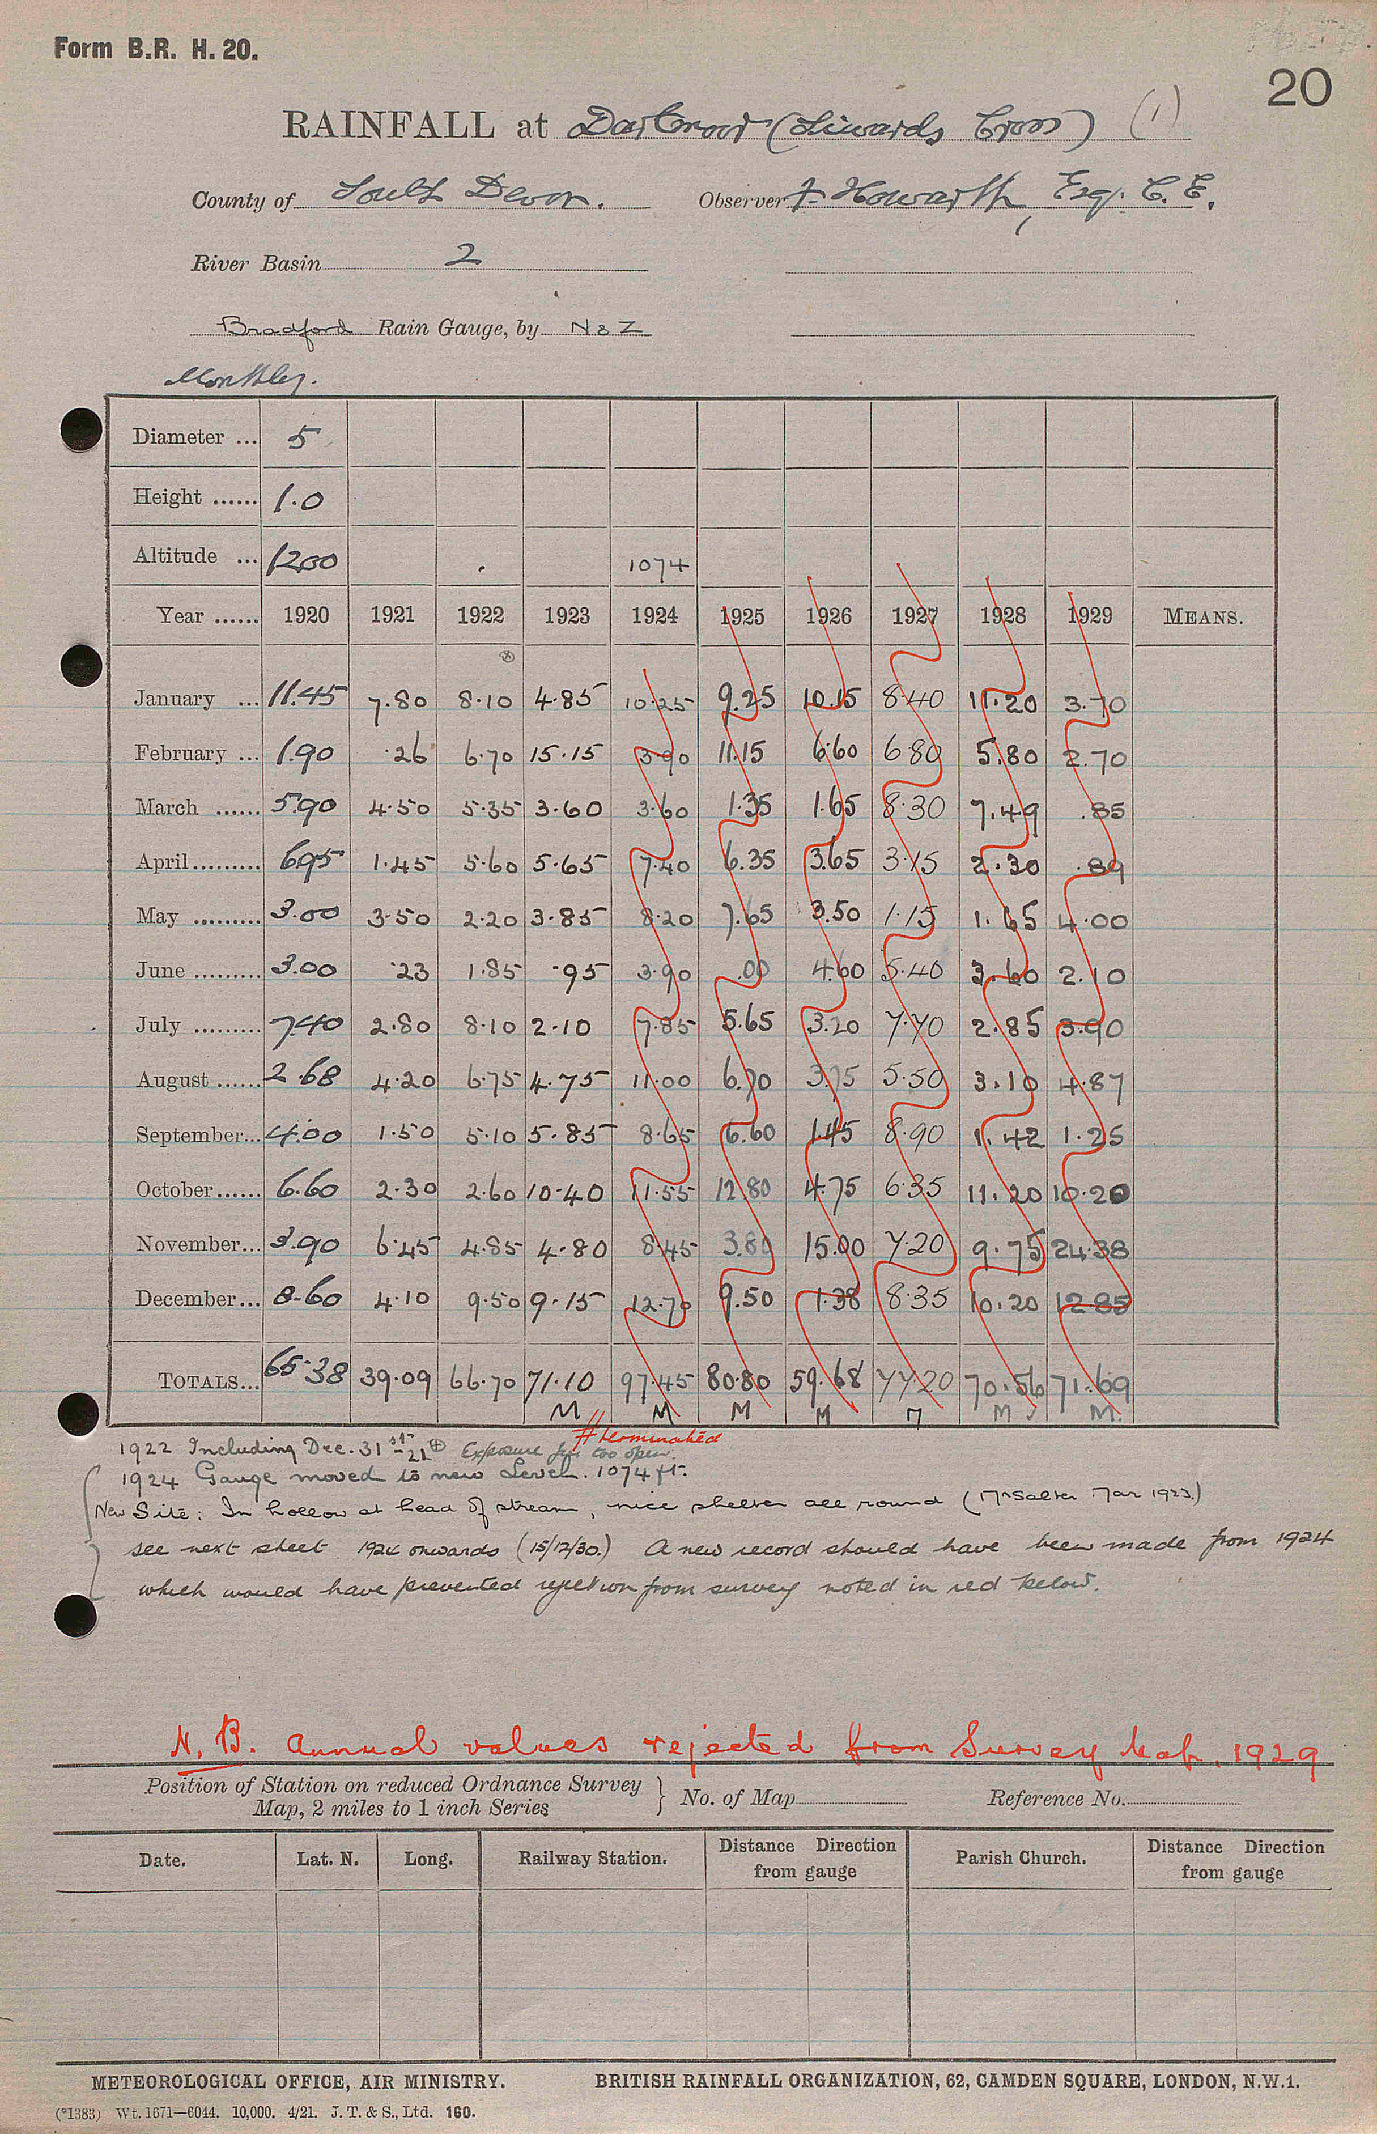 Form B.R. H. 20.
20
RAINFALL at Dartmoor (Siwards Cross) (1)
County of South Devon. Observer F Howarth, Esq. C. E.
River Basin 2
Bradford Rain Gauge, by N & Z
Monthly.
Diameter ... 5
Height ...... 1.0
Altitude ... 1200 1074
Year ...... 1920 1921 1922 1923 1924 1925 1926 1927 1928 1929 MEANS.
January ... 11.45 7.80 8.10 4.85 10.25 9.25 10.15 8.40 11.20 3.70
February ... 1.90 .26 6.70 15.15 3.90 11.15 6.60 6.80 5.80 2.70
March ...... 5.90 4.50 5.35 3.60 3.60 1.35 1.65 8.30 7.49 .85
April ......... 6.95 1.45 5.60 5.65 7.40 6.35 3.65 3.15 2.30 .89
May ......... 3.00 3.50 2.20 3.85 8.20 7.65 3.50 1.15 1.65 4.00
June ......... 3.00 .23 1.85 .95 3.90 .00 4.60 5.40 3.60 2.10
July ......... 7.40 2.80 8.10 2.10 7.85 5.65 3.20 7.70 2.85 3.90
August ...... 2.68 4.20 6.75 4.75 11.00 6.70 3.75 5.50 3.10 4.87
September... 4.00 1.50 5.10 5.85 8.65 6.60 1.45 8.90 1.42 1.25
October...... 6.60 2.30 2.60 10.40 11.55 12.80 4.75 6.35 11.20 10.20
November... 3.90 6.45 4.85 4.80 8.45 3.80 15.00 7.20 9.75 24.38
December... 8.60 4.10 9.50 9.15 12.70 9.50 1.38 8.35 10.20 12.85
TOTALS... 65.38 39.09 66.70 71.10 97.45 80.80 59.68 77.20 70.56 71.69
M M M M M M M
# terminated
1922 Including Dec. 31st 21 ⊕ Exposure too open.
1924 Gauge moved to new Level. 1074 ft.
New Site: In hollow at head of stream, nice shelter all round (Mr Salter Jan 1923)
see next sheet 1924 onwards (15/12/30.) A new record should have been made from 1924
which would have prevented rejection from survey noted in red below.
N. B. Annual values rejected from Survey Map. 1929
Position of Station on reduced Ordnance Survey
Map, 2 miles to 1 inch Series } No. of Map Reference No.
Date. Lat. N. Long. Railway Station. Distance Direction from gauge Parish Church. Distance Direction from gauge
METEOROLOGICAL OFFICE, AIR MINISTRY. BRITISH RAINFALL ORGANIZATION, 62, CAMDEN SQUARE, LONDON, N.W.1.
(*1383) Wt. 1671—6044. 10,000. 4/21. J. T. & S., Ltd. 160.